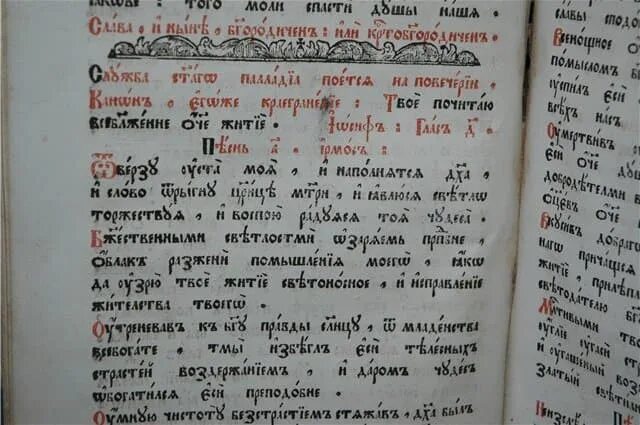 того моли спасти душы нашя.
Слава, и нынѣ, бг҃ородиченъ: или крⷭ҇тобг҃ородиченъ.
Служба ст҃агѡ палладїа поется на повечерїи.
Канѡнъ, егѡже краегранесїе: Твое почитаю
всеблаженне ѻ҃че житїе: Іѡсифъ: Гласъ д҃.
Пѣснь а҃. ірмосъ:
Ѿверзу ѹста моя, и наполнятся дх҃а,
и слово ѿрыгну цр҃ицѣ мт҃ри, и явлюся свѣтлѡ
торжествуя, и воспою радуяся тоя чудеса.
Бжⷭ҇твенными свѣтлостми ѡзаряемь прпⷣбне,
ѻблакъ разжени помышленїя моегѡ, якѡ
да ѹзрю твое житїе свѣтоносное, и исправленїе
жителства твоегѡ.
Оутреневавъ къ бг҃у правды сл҃нцу, ѿ младенства
всебогате, тмы избѣглъ еси тѣлесныхъ
страстей воздержанїемъ, и даромъ чудесъ
ѡбогатился еси преподобне.
Оумную чистоту безстрастїемъ стяжавъ, дх҃а былъ
славы
Всенощное
помысломъ
ѹспилъ еси
всѣхъ насъ
Оумертвивъ
еси ѻ҃че
добродѣтелми
ѻтцевъ ѻ҃че
Вкусивъ добраг
нагѡ причащся
житїе, прилѣпл
свѣтодателю бг҃
ѹглїе ѹгаси
и ѹгашеный
златый свѣти